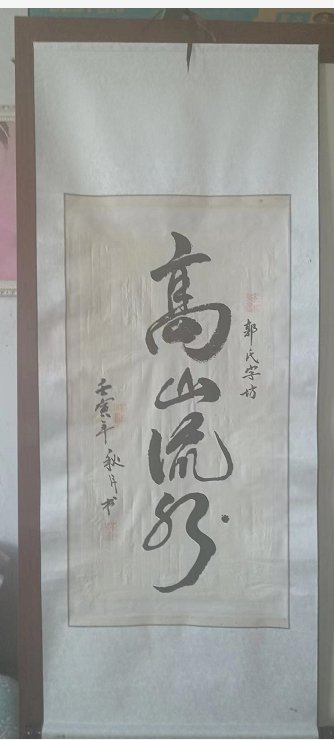 郭氏字坊
高山流水
壬寅年秋月书